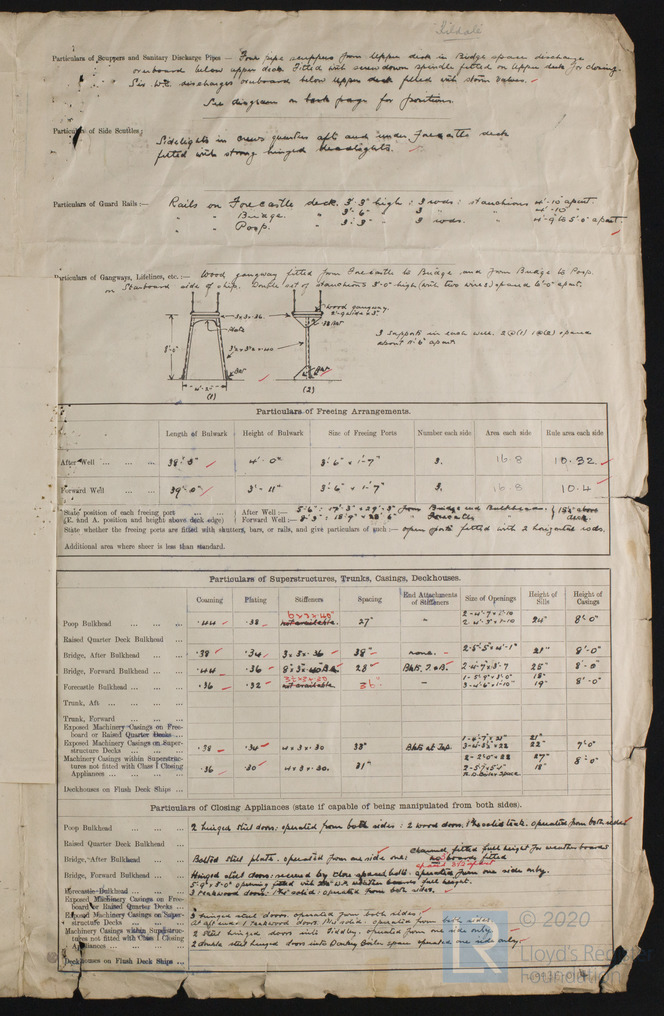 "Kildale"
Particulars of Scuppers and Sanitary Discharge Pipes — Four pipe scuppers from Upper deck in Bridge space discharge
overboard below upper deck. Fitted with screwdown spindle fitted on Upper deck for closing.
Six W.C. discharges overboard below Upper deck fitted with storm valves.
See diagram on back page for positions.
Particulars of Side Scuttles:
Sidelights in crews quarters aft and under Forecastle deck
fitted with strong hinged deadlights.
Particulars of Guard Rails :— Rails on Forecastle deck. 3'-3" high : 3 rods : stanchions 4'-10" apart.
" " Bridge. " 3'-6" " 3 " " 4'-10" "
" " Poop. " 3'-3" " 3 rods. " 4'-9 to 5'-0" apart.
Particulars of Gangways, Lifelines, etc. :— Wood gangway fitted from Forecastle to Bridge and from Bridge to Poop.
on Starboard side of ship. Double set of stanchions 3'-0" high (with two wires) spaced 4'-0" apart.
Wood gangway.
3 x 3 x .36.
Plate
8'-0"
4'-2"
(1)
(2)
3 supports in each well. 2@(1) 1@(2) spaced
about 11'-6" apart
Particulars of Freeing Arrangements.
Length of Bulwark Height of Bulwark Size of Freeing Ports Number each side Area each side Rule area each side
After Well ... ... ... 38'-3" 4'-0" 3'-6" x 1'-7" 3. 16.8 10.32
Forward Well ... ... 39'-0" 3'-11" 3'-6" x 1'-7" 3. 16.8 10.4
State position of each freeing port ... ... After Well :— 5'-6" : 17'-3" x 29'-3" from Bridge end Bulkheads. 15½" above
(F. and A. position and height above deck edge) Forward Well :— 8'-3" : 18'-9" x 28'-6" " Forecastle " deck.
State whether the freeing ports are fitted with shutters, bars, or rails, and give particulars of such :— open ports fitted with 2 horizontal rods.
Additional area where sheer is less than standard.
Particulars of Superstructures, Trunks, Casings, Deckhouses.
Coaming Plating Stiffeners Spacing End Attachments of Stiffeners Size of Openings Height of Sills Height of Casings
Poop Bulkhead ... ... ... .44 .38 6 x 3 x .40 not available. 27" " 24" 8'-0"
Raised Quarter Deck Bulkhead ...
Bridge, After Bulkhead ... ... .38 .34 3 x 3 x .36 38" none. 2-5'-5" x 4'-1" 21" 8'-0"
Bridge, Forward Bulkhead ... ... .44 .36 8 x 3 x .40 B.A. 28" Bkts. T. & B. 2-4'-7 x 3'-7 25" 8'-0"
Forecastle Bulkhead ... ... .36 .32 not available 36" – 18" 19" 8'-0"
Trunk, Aft ... ... ...
Trunk, Forward ... ... ...
Exposed Machinery Casings on Freeboard or Raised Quarter Decks ...
Exposed Machinery Casings on Superstructure Decks ... ... .38 .34 4 x 3 x .30 33" Bkts at Top. 21" 22" 7'-0"
Machinery Casings within Superstructures not fitted with Class 1 Closing Appliances ... .36 .30 4 x 3 x .30. 31" 27" 18" 8'-0"
Deckhouses on Flush Deck Ships ...
Particulars of Closing Appliances (state if capable of being manipulated from both sides).
Poop Bulkhead ... ... ... 2 hinged steel doors: operated from both sides : 2 wood doors. 1¾ solid teak. Operated from both sides
Raised Quarter Deck Bulkhead ... channel fitted full height for weatherboards
Bridge, After Bulkhead ... Bolted steel plate. operated from one side one: no boards fitted
Bridge, Forward Bulkhead ... ... Hinged steel doors: secured by close spaced bolts. operated from one side only.
5'-9" x 5'-0" opening fitted with weather boards full height.
Forecastle Bulkhead ... ... 3 Teakwood doors: 1¾ solid: operated from both sides.
Exposed Machinery Casings on Freeboard or Raised Quarter Decks ...
Exposed Machinery Casings on Superstructure Decks ... ... 3 hinged steel doors. operated from both sides.
At aft end: 1 teakwood doors. 1¾ solid. operated from both sides.
Machinery Casings within Superstructures not fitted with Class 1 Closing Appliances ... 2 steel hinged doors into Fiddley. operated from one side only.
2 double steel hinged doors into Donkey Boiler space operated one side only.
Deckhouses on Flush Deck Ships ...
© 2020
LR
Lloyd's Register
Foundation